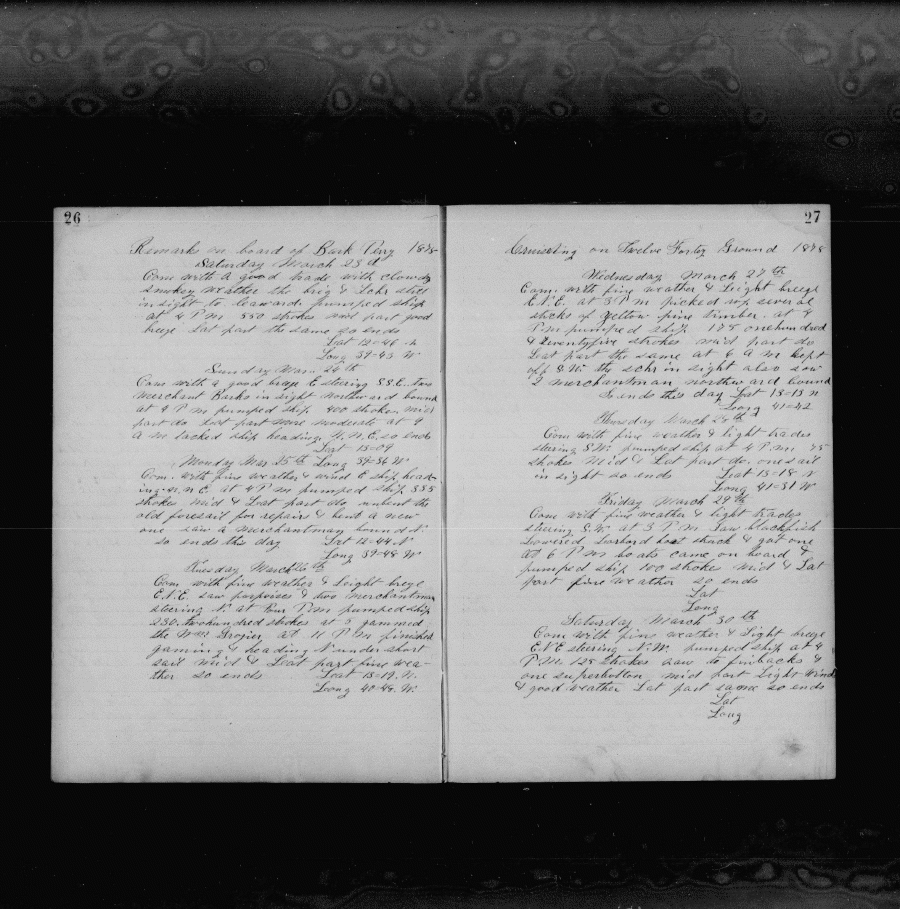 26
Remarks on board of Bark Perry 1878
Saturday March 23d
Com with a good trade with cloudy
smokey weather the brig & Schr still
in sight to leaward. pumped ship
at 4 P m 550 strokes mid part good
breze Lat part the same so ends
Lat 12=46 N
Long 39=43 W
Sunday Mar. 24th
Com with a good breze E steering S S E. two
merchant Barks in sight northward bound
at 4 P m pumped ship 400 strokes mid
part do Lat part more moderate at 9
A m tacked ship heading N.N.E. so ends
Lat 13=09
Monday Mar 25th Long 39=36 W
Com. with fine weather & wind E ship head-
ing. n.n.E. at 4 P m pumped ship 555
strokes mid & Last part do unbent the
old foresail for repairs & bent a new
one saw a merchantman bound N.
so ends this day Lat 12=44 N
Long 39=48 W
Tuesday March 26th
Com with fine weather & Leight breze
E.N.E. saw porpoises & two merchantman
steering N. at Four P.m pumped ship
230. twohundred strokes at 5 gammed
the Wm Grozier at 11 P m finished
gaming & heading N under short
sail mid & Leat part fine wea-
ther so ends Leat 13=19. N.
Leong 40=48 W.
27
Cruiseting on Twelve Forty Ground 1878
Wednesday March 27th
Com. with fine weather & Leight breze
E.N.E. at 3 P m picked up several
sticks of yellow pine timber. at 4
P.m pumped ship 175 onehundred
& seventyfive strokes mid part do
Lat part the same at 6 A m kept
off S.W. the schr in sight also saw
2 merchantman northward bound
So ends this day Lat 13=13 n
Long 41=42
Thursday March 28th
Com with fine weather & light trades
steering S.W. pumped ship at 4 P.m. 75
strokes Mid & Lat part do. one sail
in sight so ends Leat 13=18 N
Leong 41=31 W
Friday March 29th
Com with fine weather & light trades
steering S.W. at 3 P.m. Saw blackfish
Lowered Larbord boat struck & got one
at 6 P m boats came on board &
pumped ship 100 strokes mid & Lat
part fine weather so ends
Lat
Long
Saturday March 30th
Com with fine weather & Light breze
E.N.E steering N.W. pumped ship at 4
P.m. 125 strokes saw to finbacks &
one superbottom mid part Light wind
& good weather Lat part same so ends
Lat
Long